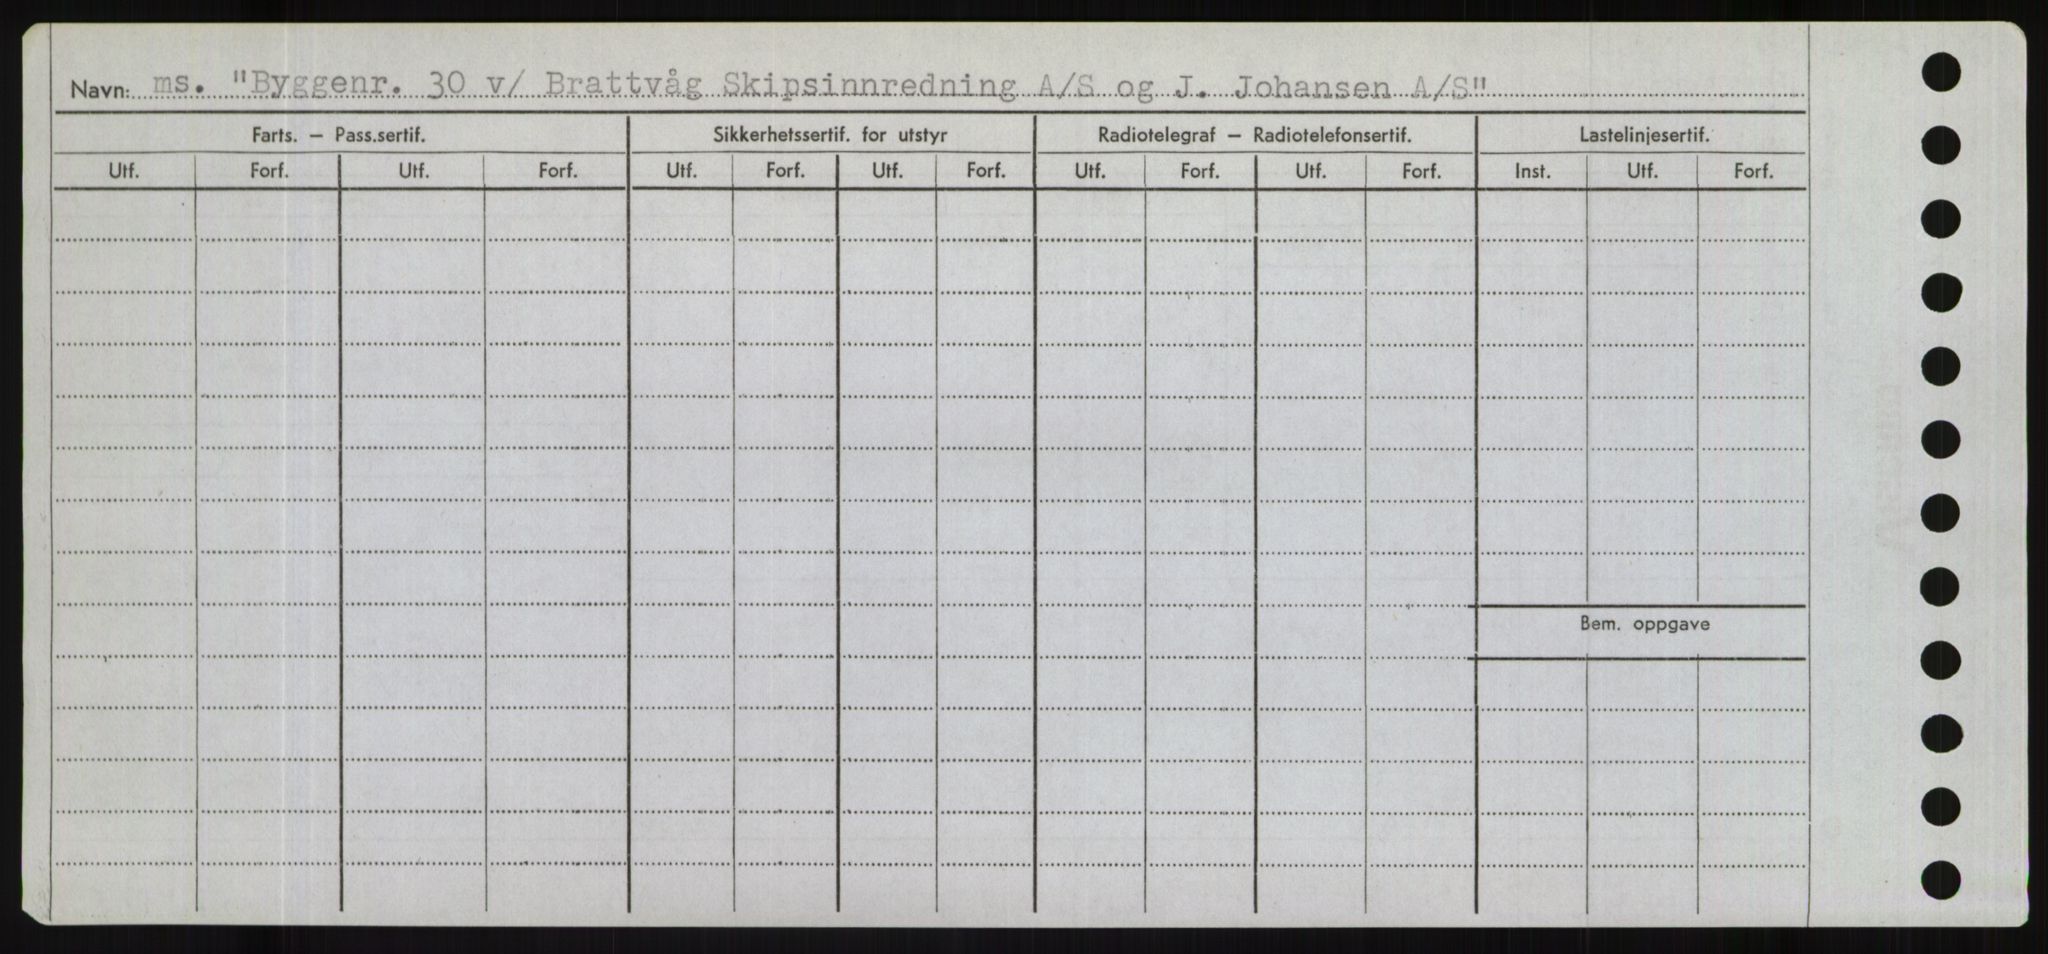 Navn: ms. "Byggenr. 30 v/ Brattvåg Skipsinnredning A/S og J. Johansen A/S"
Farts. — Pass.sertif. Sikkerhetssertif. for utstyr Radiotelegraf — Radiotelefonsertif. Lastelinjesertif.
Utf. Forf. Utf. Forf. Utf. Forf. Utf. Forf. Utf. Forf. Utf. Forf. Inst. Utf. Forf.
Bem. oppgave